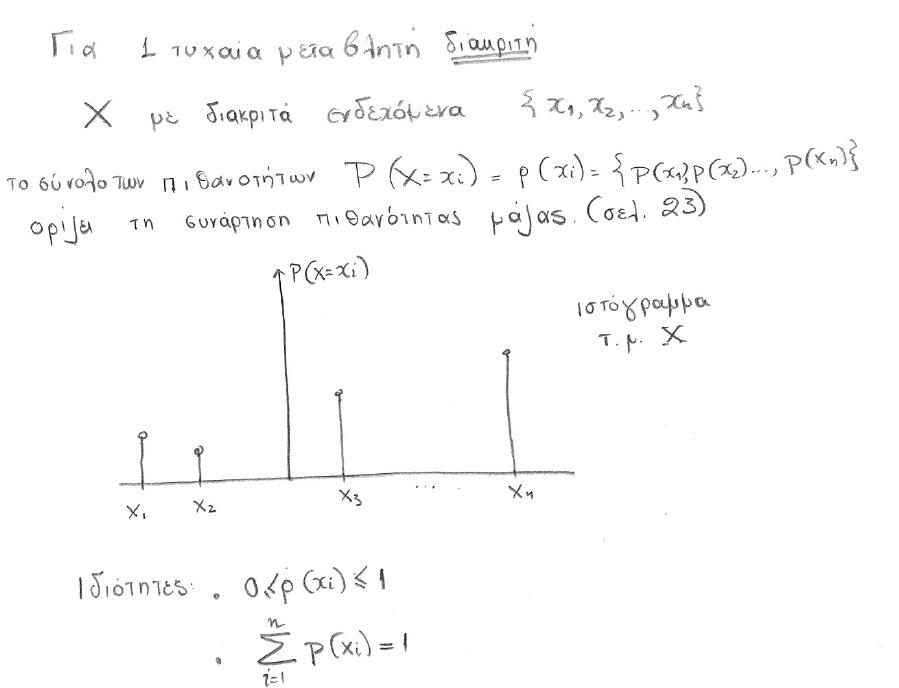 Για 1 τυχαία μεταβλητή διακριτή
X με διακριτά ενδεχόμενα {x₁, x₂, ..., xₙ}
το σύνολο των πιθανοτήτων P(X=xᵢ) = p(xᵢ) = {p(x₁), p(x₂)..., p(xₙ)}
ορίζει τη συνάρτηση πιθανότητας μάζας. (σελ. 23)
P(X=xᵢ)
ιστόγραμμα
τ.μ. X
x₁ x₂ x₃ ... xₙ
Ιδιότητες: . 0 ≤ p(xᵢ) ≤ 1
. ∑ᵢ₌₁ⁿ p(xᵢ) = 1